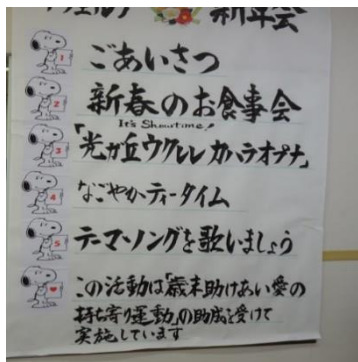 新年会
1 ごあいさつ
2 新春のお食事会
It's Showtime!
3 「光が丘ウクレレ カハラオプナ」
4 なごやかティータイム
5 テーマソングを歌いましょう
この活動は「歳末助けあい愛の
持ち寄り運動」の助成を受けて
実施しています